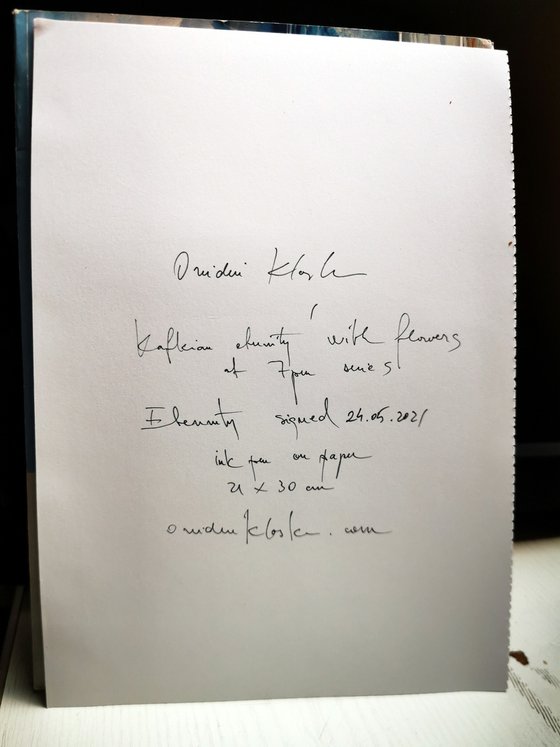 Ovidiu Kloska
Kafkian eternity with flowers
at 7pm series
Eternity signed 24.05.2021
ink pen on paper
21 x 30 cm
ovidiukloska.com